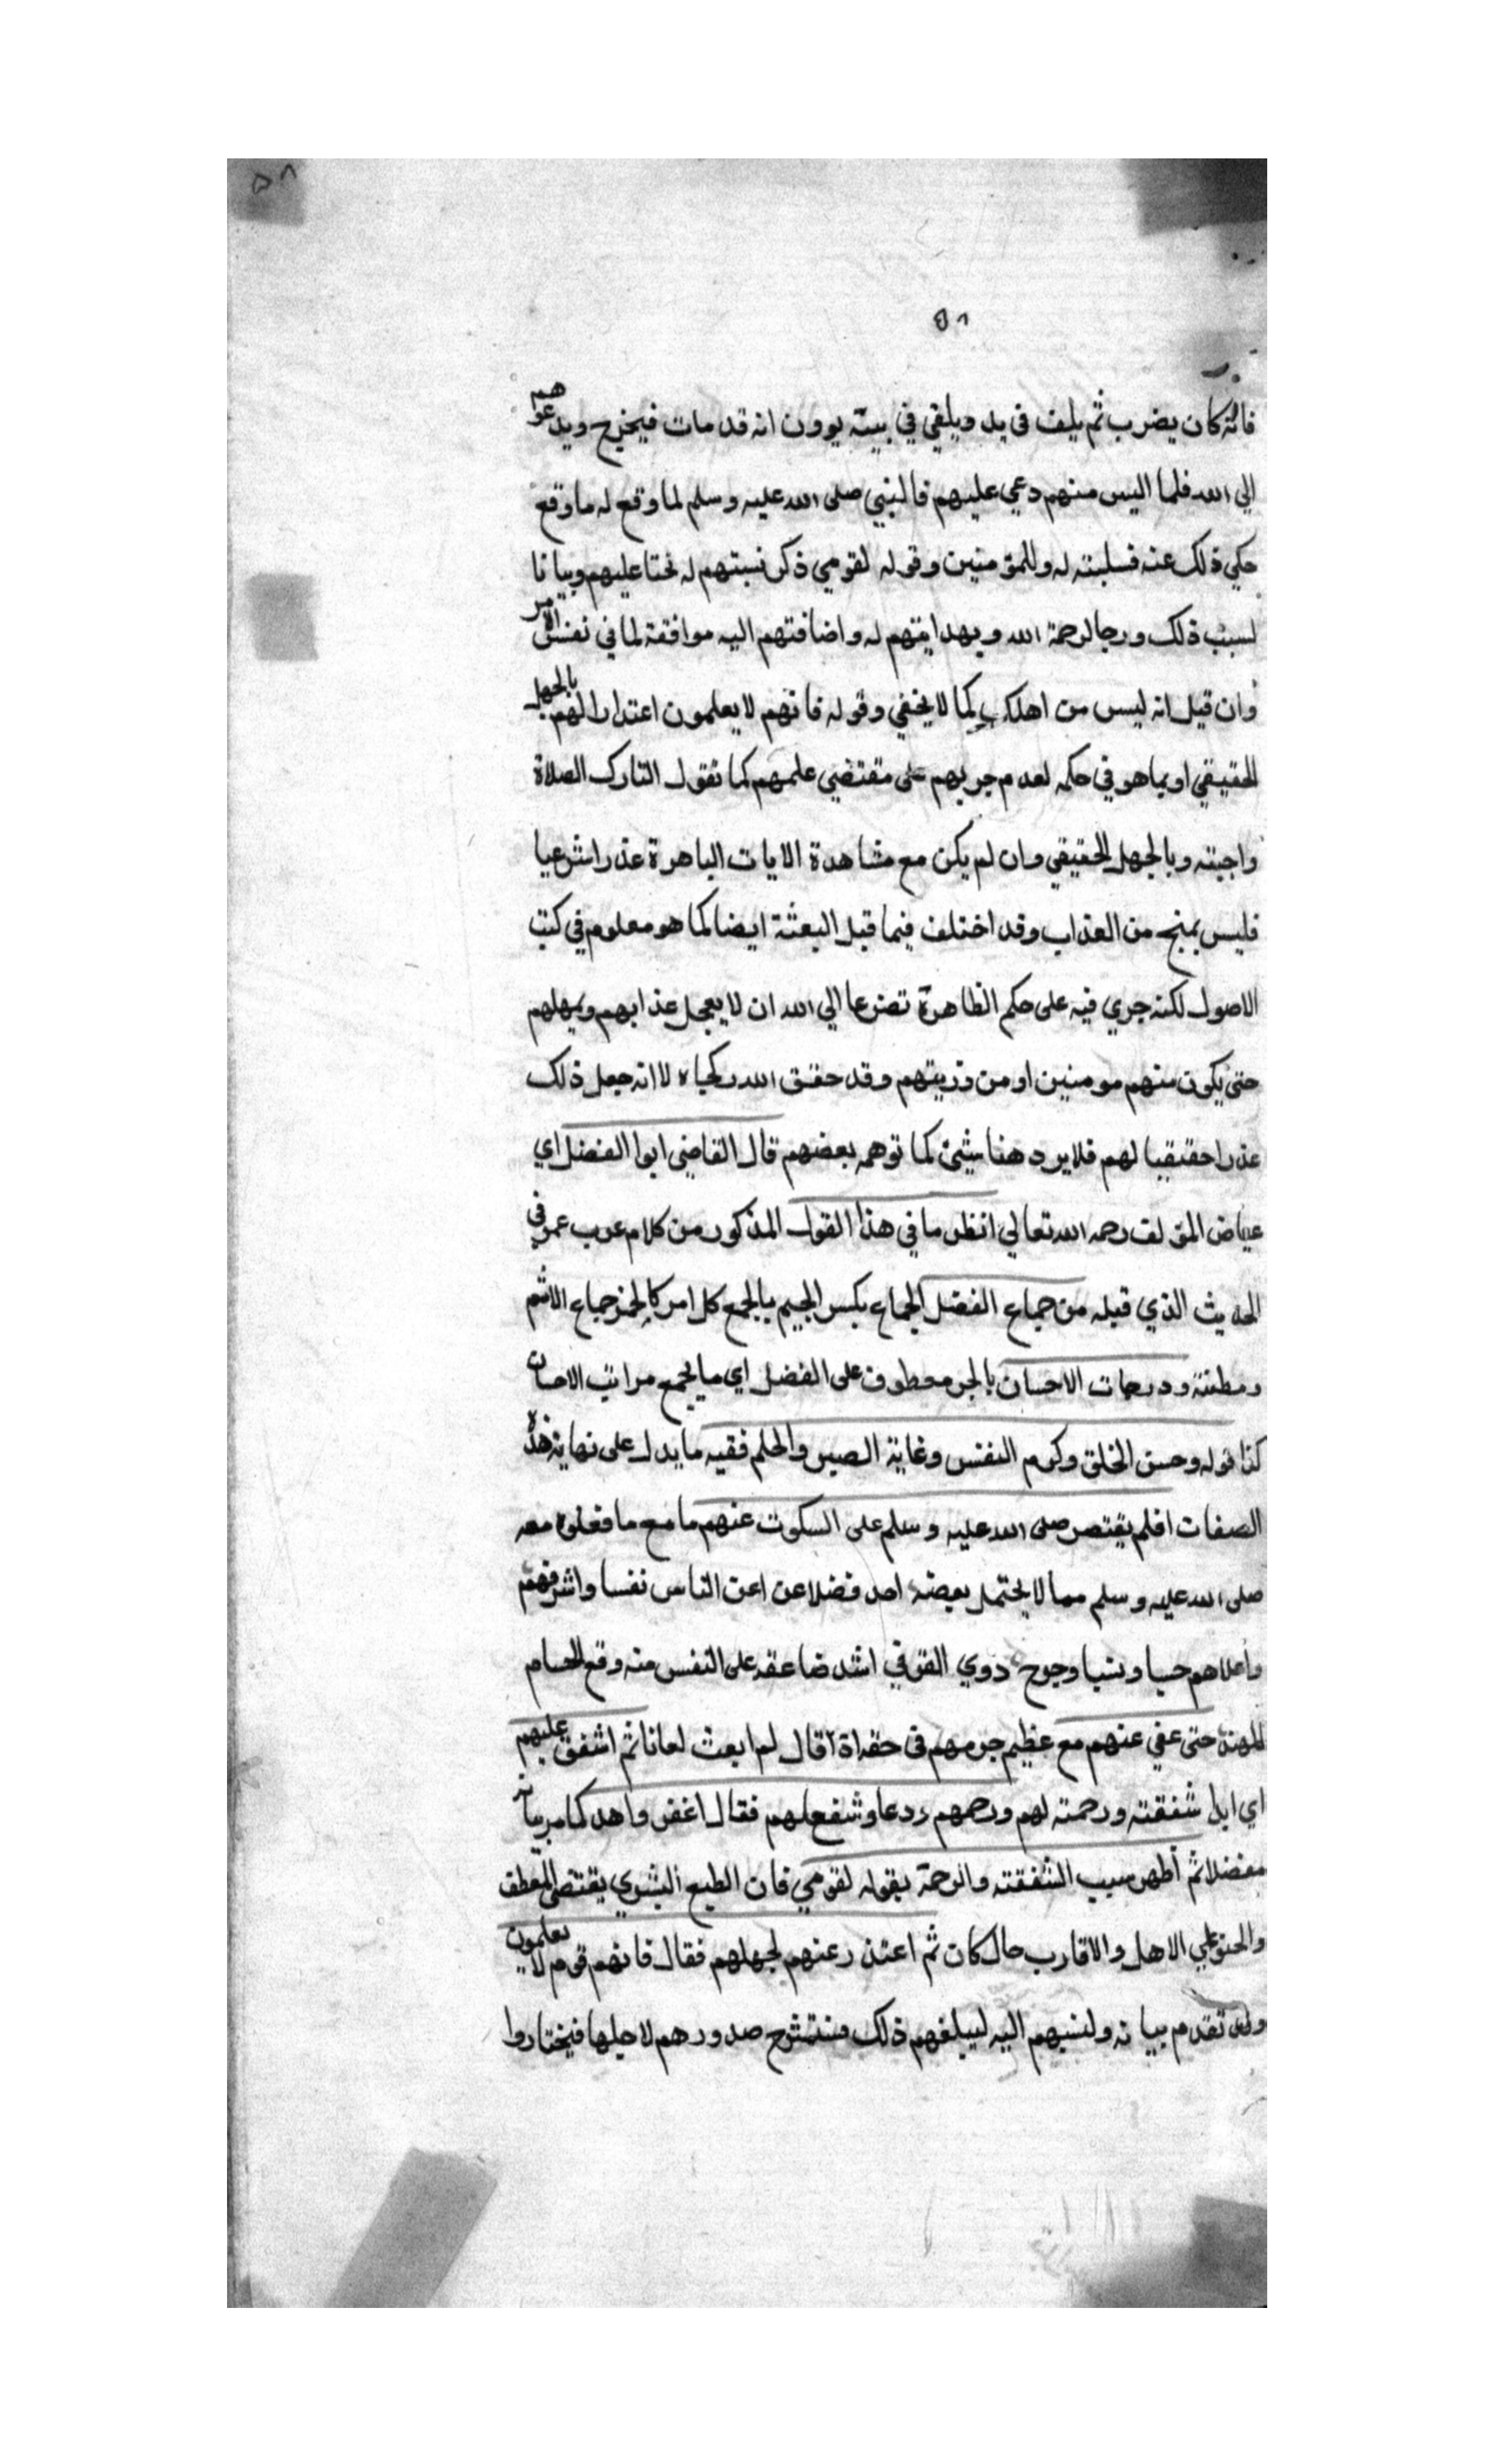 ٥٨
٥٨
فانه كان يضرب ثم يلف في بد ويلقي في بيته يرون انه قد مات فيخرج ويدعوهم
الي الله فلما اليس منهم دعي عليهم فالنبي صلى الله عليه وسلم لما وقع له ما وقع
حكي ذلك عنه فسلبته له وللمؤمنين وقوله لقومي ذكر نسبتهم له تحننا عليهم وبيانا
لسبب ذلك ورجا لرحمة الله وبهدايتهم له واضافتهم اليه موافقة لما في نفس الامر
وان قيل انه ليس من اهلك كما لا يخفي وقوله فانهم لا يعلمون اعتذارا لهم بالجهل
الحقيقي او بما هو في حكمه لعدم جريهم على مقتضي علمهم كما تقول التارك الصلاة
واجبته وبالجهل الحقيقي وان لم يكن مع مشاهدة الايات الباهرة عذرا شرعيا
فليس بمنج من العذاب وقد اختلف فيما قبل البعثة ايضا كما هو معلوم في كتب
الاصول لكنه جري فيه على حكم الظاهرة تضرعا الي الله ان لا يعجل عذابهم ويمهلهم
حتى يكون منهم مومنين او من ذريتهم وقد حقق الله رجاه لا انه جعل ذلك
عذرا حقيقيا لهم فلا يرد هنا شيئ كما توهمه بعضهم قال القاضي ابوا الفضل اي
عياض المؤلف رحمه الله تعالي انظر ما في هذا القول المذكور من كلام عرب عمر في
الحديث الذي قبله من جماع الفضل الجماع بكسر الجيم بالجمع كل امر كالخمر جماع الاثم
ومظنته ودرجات الاحسان بالجر معطوف على الفضل اي ما يجمع مراتب الاحسان
كذا قوله وحسن الخلق وكرم النفس وغاية الصبر والحلم ففيه ما يدل على نهاية هذه
الصفات اذ لم يقتصر صلى الله عليه وسلم على السكوت عنهم ما مع ما فعلوه معه
صلى الله عليه وسلم مما لا يحتمل بعضه احد فضلا عن اعن الناس نفسا واشرفهم
واعلاهم حسبا ونسبا وجوح ذوي القوفي اشد ضاعفه على النفس منه وقع الحسام
المهند حتى عفي عنهم مع عظيم جرمهم في حقه اذ قال لم ابعث لعانا ثم اشفق عليهم
اي ابدا شفقته ورحمته لهم ورحمهم ودعا وشفع لهم فقال اغفر واهد كما مر بيانه
مفضلا ثم اظهر سبب الشفقته والرحمة بقوله لقومي فان الطبع البشري يقتضي التعطف
والحنو علي الاهل والاقارب حال كان ثم اعتذر عنهم لجهلهم فقال فانهم قوم لا يعلمون
وقد تقدم بيانه ولنسبهم اليه ليبلغهم ذلك فتنشرح صدورهم لاجلها فيختاروا